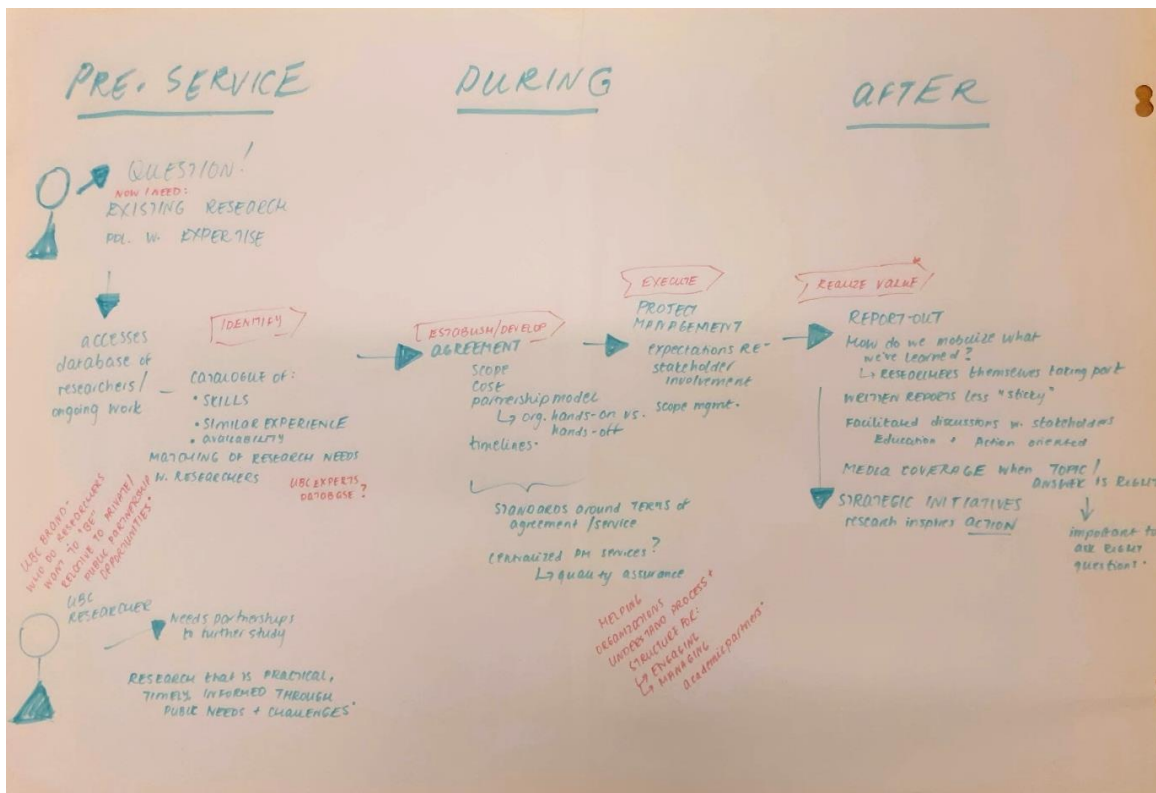 PRE. SERVICE
QUESTION!
NOW I NEED:
EXISTING RESEARCH
PPL. W. EXPERTISE
accesses
database of
researchers/
ongoing work
IDENTIFY
CATALOGUE OF:
• SKILLS
• SIMILAR EXPERIENCE
• AVAILABILITY
MATCHING OF RESEARCH NEEDS
W. RESEARCHERS
UBC EXPERTS
DATABASE?
UBC BRAND-
WHO DO RESEARCHERS
WANT TO "BE"
RELATIVE TO PRIVATE/
PUBLIC PARTNERSHIP
OPPORTUNITIES•
UBC
RESEARCHER
Needs partnerships
to further study
RESEARCH that is PRACTICAL,
TIMELY, INFORMED THROUGH
PUBLIC NEEDS + CHALLENGES•
DURING
ESTABLISH/DEVELOP
AGREEMENT
SCOPE
COST
partnership model
↳ org. hands-on vs.
hands-off
timelines•
STANDARDS around TERMS of
agreement/service
CENTRALIZED PM services?
↳ quality assurance
EXECUTE
PROJECT
MANAGEMENT
expectations RE-
stakeholder
involvement
scope mgmt.
HELPING
ORGANIZATIONS
UNDERSTAND PROCESS +
STRUCTURE FOR:
↳ ENGAGING
↳ MANAGING
academic partners•
AFTER
REALIZE VALUE
REPORT-OUT
How do we mobilize what
we've learned?
↳ RESEARCHERS themselves taking part
WRITTEN REPORTS less "sticky"
Facilitated discussions w. stakeholders
Education • Action oriented
MEDIA COVERAGE when TOPIC/
ANSWER IS RIGHT
STRATEGIC INITIATIVES
research inspires ACTION
important to
ask RIGHT
questions•